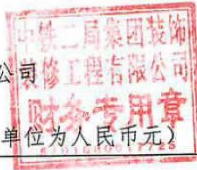 公司
中铁二局集团装饰
装修工程有限公司
财务专用章
单位为人民币元）